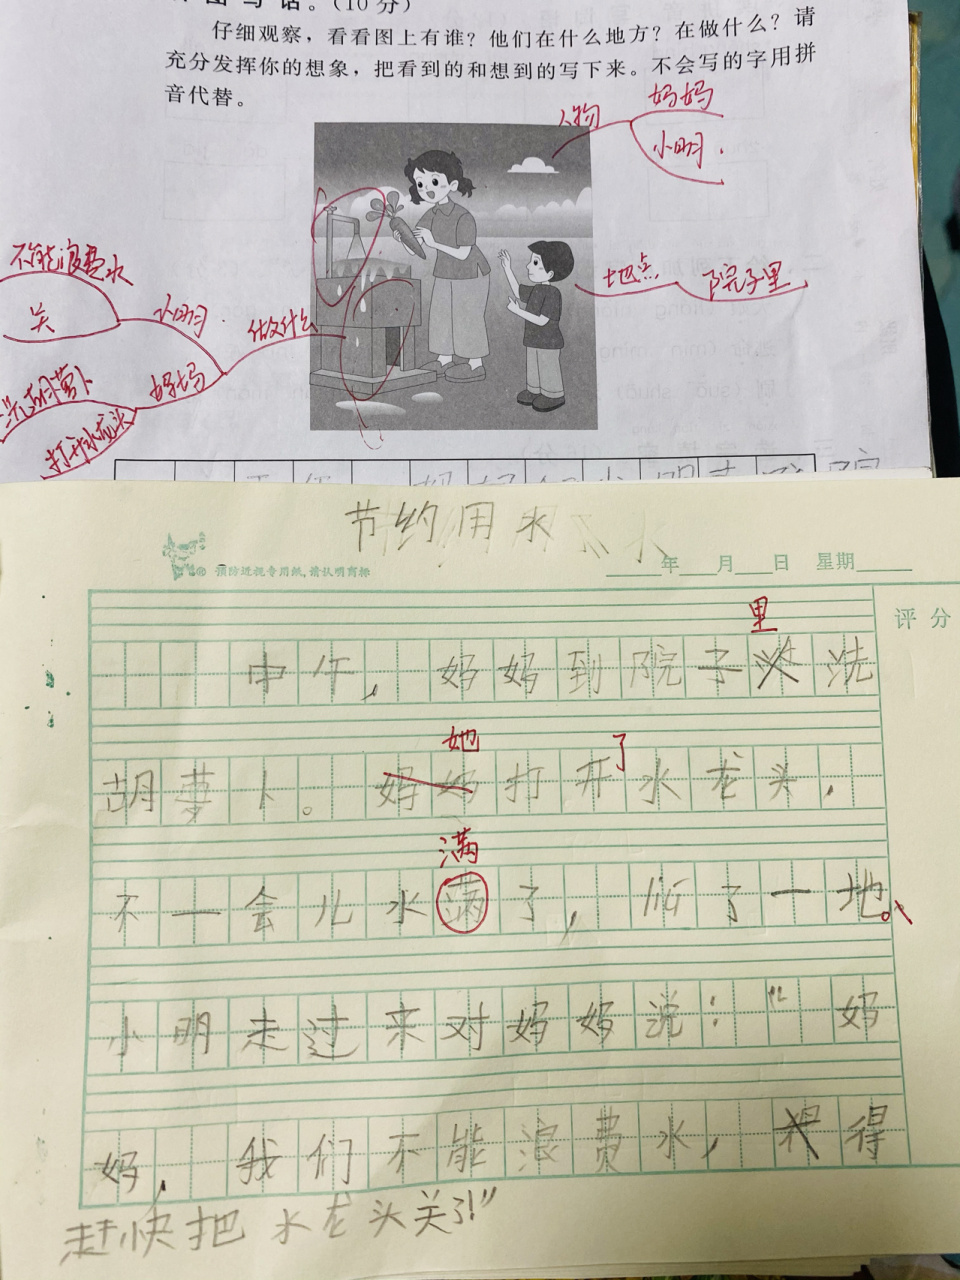 看图写话。(10分)
仔细观察，看看图上有谁？他们在什么地方？在做什么？请
充分发挥你的想象，把看到的和想到的写下来。不会写的字用拼
音代替。
人物
妈妈
小明
地点
院子里
做什么
小明
不能浪费水
关
妈妈
洗胡萝卜
打开水龙头
节约用水
预防近视专用纸,请认明商标
年 月 日 星期
评分
里
中午，妈妈到院子 洗
她 了
胡萝卜。妈妈打开水龙头，
满
不一会儿水满了， 了一地。
小明走过来对妈妈说：“妈
妈，我们不能浪费水， 得
赶快把水龙头关了!”